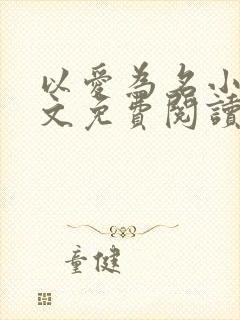 以愛為名小
文免費閱讀
童健